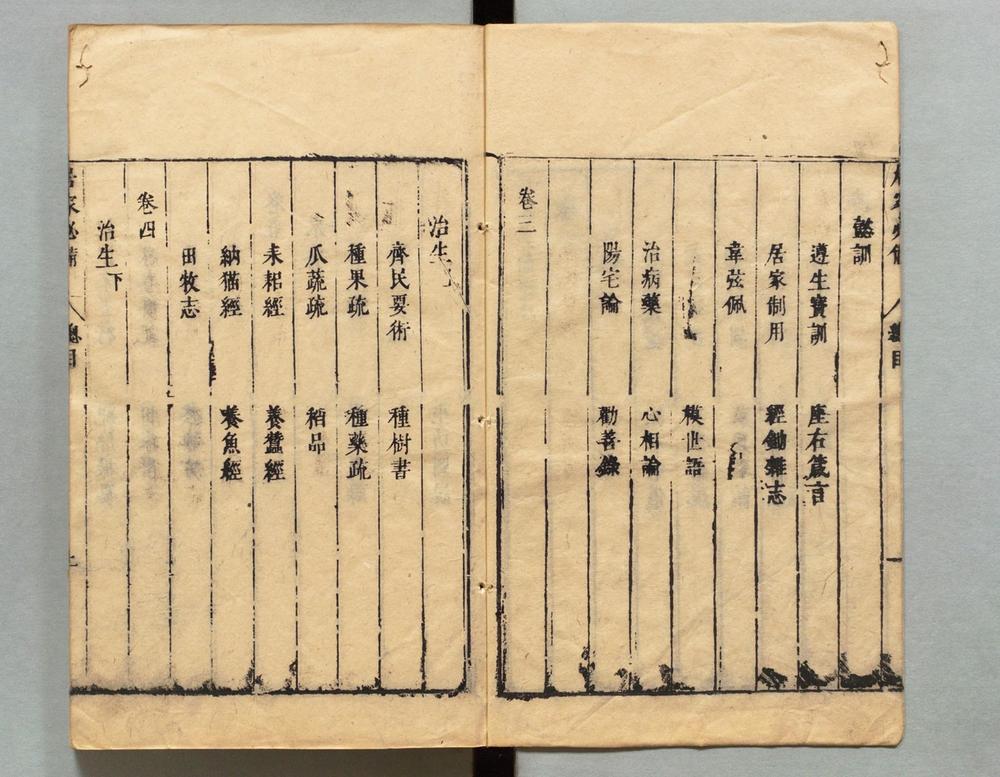 懿訓
遵生寶訓 座右箴言
居家制用 經鋤雜志
韋弦佩
模世語
治病藥 心相論
陽宅論 勸善錄
卷三
治生
齊民要術 種樹書
種果疏 種藥疏
瓜蔬疏 稻品
耒耜經 養蠶經
納猫經 養魚經
田牧志
卷四
治生下
居家必備 總目